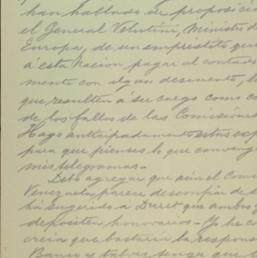 han hablado en proposició
el General Velutini, Ministro d
Europa, de un emprestito que
á esta Nacion pagar al contad
mento con algun descuento, l
que resulten á su cargo como c
de los fallos de las Comisiones
Hago anticipadamente estas exp
para que pienses lo que conveng
mis telegramas.-
Debo agregar que aún el Com
Venezuela, parece desconfiar de s
há sugerido á Duret que ambos
depositen honorarios. Yo he c
creia que bastaria la respons